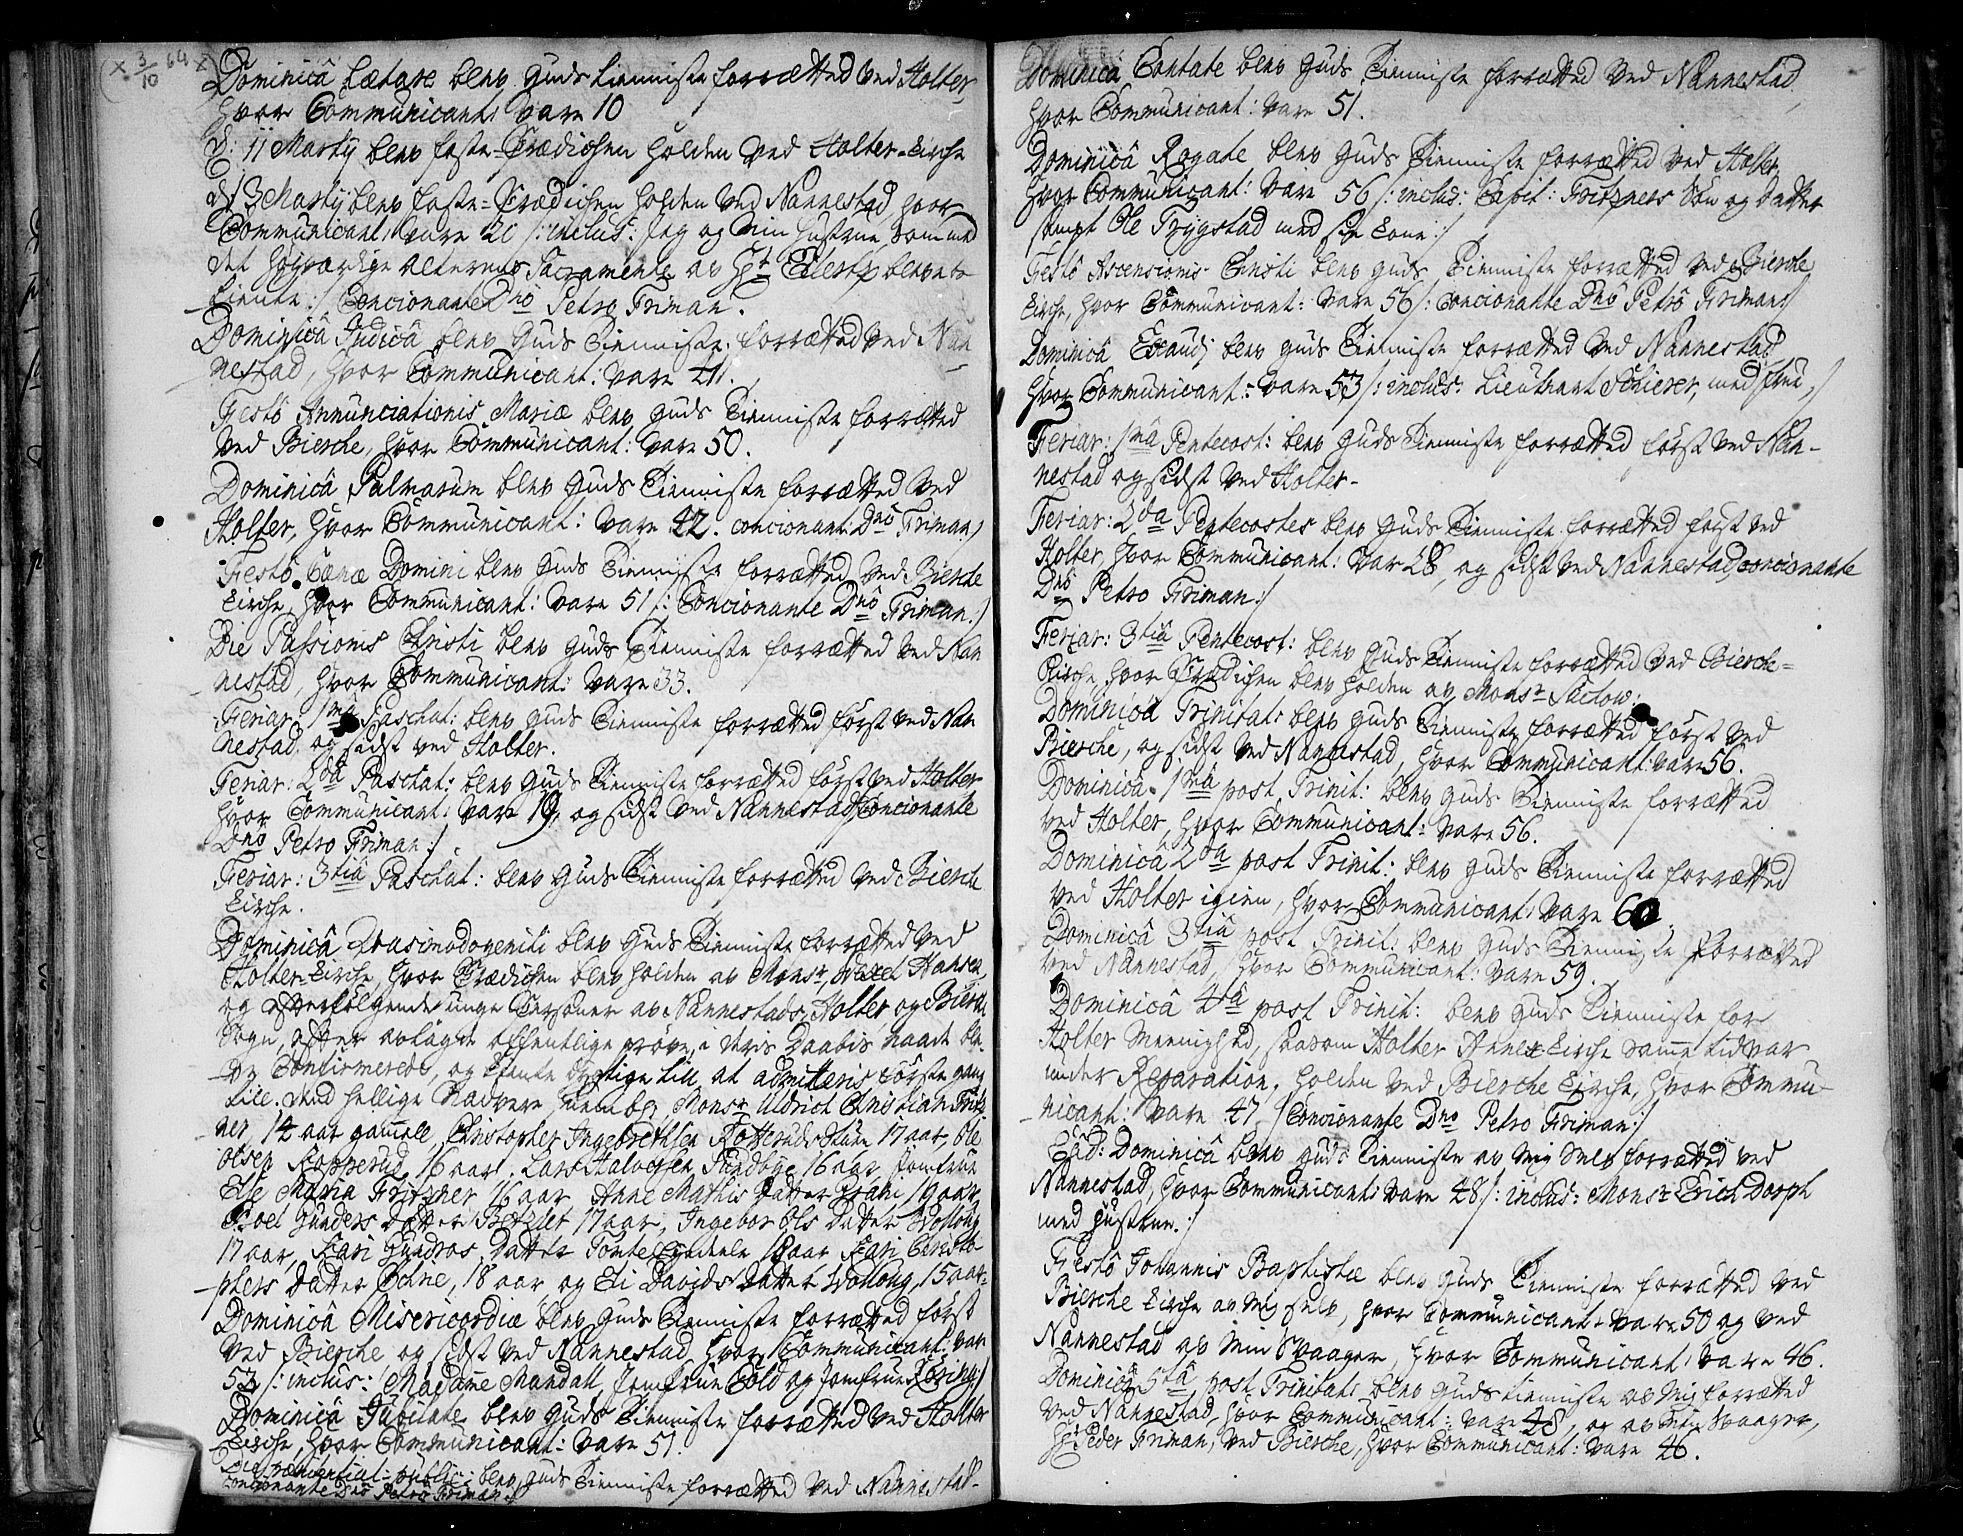 (x 3/10 64 z)
Dominicâ Lætare blev Guds Tienniste forrætted ved Holter,
hvor Communicant: vare 10
d: 11 Martij blev faste-Prædichen holden ved Holter-Kirche
d: 13 Martij blev faste-Prædichen holden ved Nannestad, hvor
Communicant: vare 20 /: inclus: Jeg og Min Hustrue, som med
det høyværdige Alterens Sacramente av Hr betiente:/
Concionante Dno Petro Friman.
Dominicâ Judicâ blev Guds Tienniste forrætted ved Nan-
nestad, hvor Communicant: vare 41.
Festô Annunciationis Mariæ blev Guds Tienniste forrætted
ved Bierche, hvor Communicant: vare 50.
Dominicâ Palmarum blev Guds Tienniste forrætted ved
Holter, hvor Communicant: vare 42. concionant: Dno Friman:/
Festô Cænæ Domini blev Guds Tienniste forrætted ved Bierche
Kirche, hvor Communicant: vare 51 /: Concionante Dnô Friman:/
Die Passionis Christi blev Guds Tienniste forrætted ved Nan
nestad, hvor Communicant: vare 33.
Feriar: 1ma Paschat: blev Guds Tienniste forrætted først ved Nan
nestad og sidst ved Holter.
Feriar: 2da Paschat: blev Guds Tienniste forrætted først ved Holter
hvor Communicant: vare 19, og sidst ved Nannestad /: Concionante
Dno Petro Friman:/
Feriar: 3tiâ Paschat: blev Guds Tienniste forrætted ved Bierche
Kirche.
Dominicâ Quasimodogeniti blev Guds Tienniste forrætted ved
Holter-Kirche, hvor Prædichen blev holden av Monsr Hansen,
og efterfølgende unge Personer av Nannestads, Holter og Bierche
Sogn, efter avlagde offentlige prøve, i deris Daabis naade ble-
ve Confirmerede, og kiente dygtige till, at admitteris første gang
till ded hellige Nadvere, nemlig Monsr Uldrich Christian Fritz
ner, 14 aar gamell, Christopher Ingebrethsen 17 aar, Ole
Olsen Kopperud 16 aar, Lars Halvorsen Sundbye 16 aar, Jomfrue
Else Maria Fritzner 16 aar, Anne Mathis Datter 19 aar,
Gunders Datter 17 aar, Ingebor Ols Datter Wollong
17 aar, Kari Datter 18 aar, Kari Christo-
phers Datter 18 aar, og Eli Davids Datter Wollong, 15 aar.
Dominicâ Misericordiæ blev Guds Tienniste forrætted først
ved Bierche og sidst ved Nannestad, hvor Communicant: vare
52 /: inclus: Madame Mandall, Jomfrue Cold og Jomfrue Røring:/
Dominicâ Jubilate blev Guds Tienniste forrætted ved Holter
Kirche, hvor Communicant: vare 51.
Die pænitential: public: blev Guds Tienniste forrætted ved Nannestad-
concionante Dnô Petrô Friman:/
Dominicâ Cantate blev Guds Tienniste forrætted ved Nannestad,
hvor Communicant: vare 51.
Dominicâ Rogate blev Guds Tienniste forrætted ved Holter,
hvor Communicant: vare 56 /: inclus: Capit: Fritzners Søn og Datter
sampt Ole Trygstad med sin Kone:/
Festô Ascensionis Christi blev Guds Tienniste forrætted ved Bierche
Kirche, hvor Communicant: vare 56 /: Concionante Dnô Petrô Friman:/
Dominicâ Exaudj blev Guds Tienniste forrætted ved Nannestad,
hvor Communicant: vare 53 /: inclus: Lieutnant Schierer, med frue,:/
Feriar: 1mâ Pentecost: blev Guds Tienniste forrætted først ved Nan-
nestad og sidst ved Holter-
Feriar: 2da Pentecostes blev Guds Tienniste forrætted først ved
Holter, hvor Communicant: var 28, og sidst ved Nannestad, concionante
Dnô Petro Friman:/
Feriar: 3tiâ Pentecost: blev Guds Tienniste forrætted ved Bierche-
Kirche, hvor Prædichen blev holden av Monsr
Dominicâ Trinitat: blev Guds Tienniste forrætted først ved
Bierche, og sidst ved Nannestad, hvor Communicant: vare 56.
Dominicâ 1mâ post Trinit: blev Guds Tienniste forrætted
ved Holter, hvor Communicant: vare 56.
Dominicâ 2da post Trinit: blev Guds Tienniste forrætted
ved Holter igien, hvor Communicant: vare 60.
Dominicâ 3tiâ post Trinit: blev Guds Tienniste forrætted
ved Nannestad, hvor Communicant: vare 59.
Dominicâ 4tâ post Trinit: blev Guds Tienniste for
Holter Meenighed, saasom Holter Annex Kirche samme tid var
under Reparation, holden ved Bierche Kirche, hvor Commu-
nicant: vare 47. /: Concionante Dno Petro Friman:/
Eâd: Dominicâ blev Guds Tienniste av mig selv forrætted ved
Nannestad, hvor Communicant: vare 48 /: inclus: Monsr Erich Dorph
med Hustrue.:/
Festô Johannis Baptistæ blev Guds Tienniste forrætted ved
Bierche Kirche av mig selv, hvor Communicant: vare 50 og ved
Nannestad av min Svaager, hvor Communicant: vare 46.
Dominicâ 5tâ post Trinitat: blev Guds Tienniste av mig forrætted
ved Nannestad, hvor Communicant: vare 48, og av min Svaager,
Hr Peder Friman, ved Bierche, hvor Communicant: vare 46.